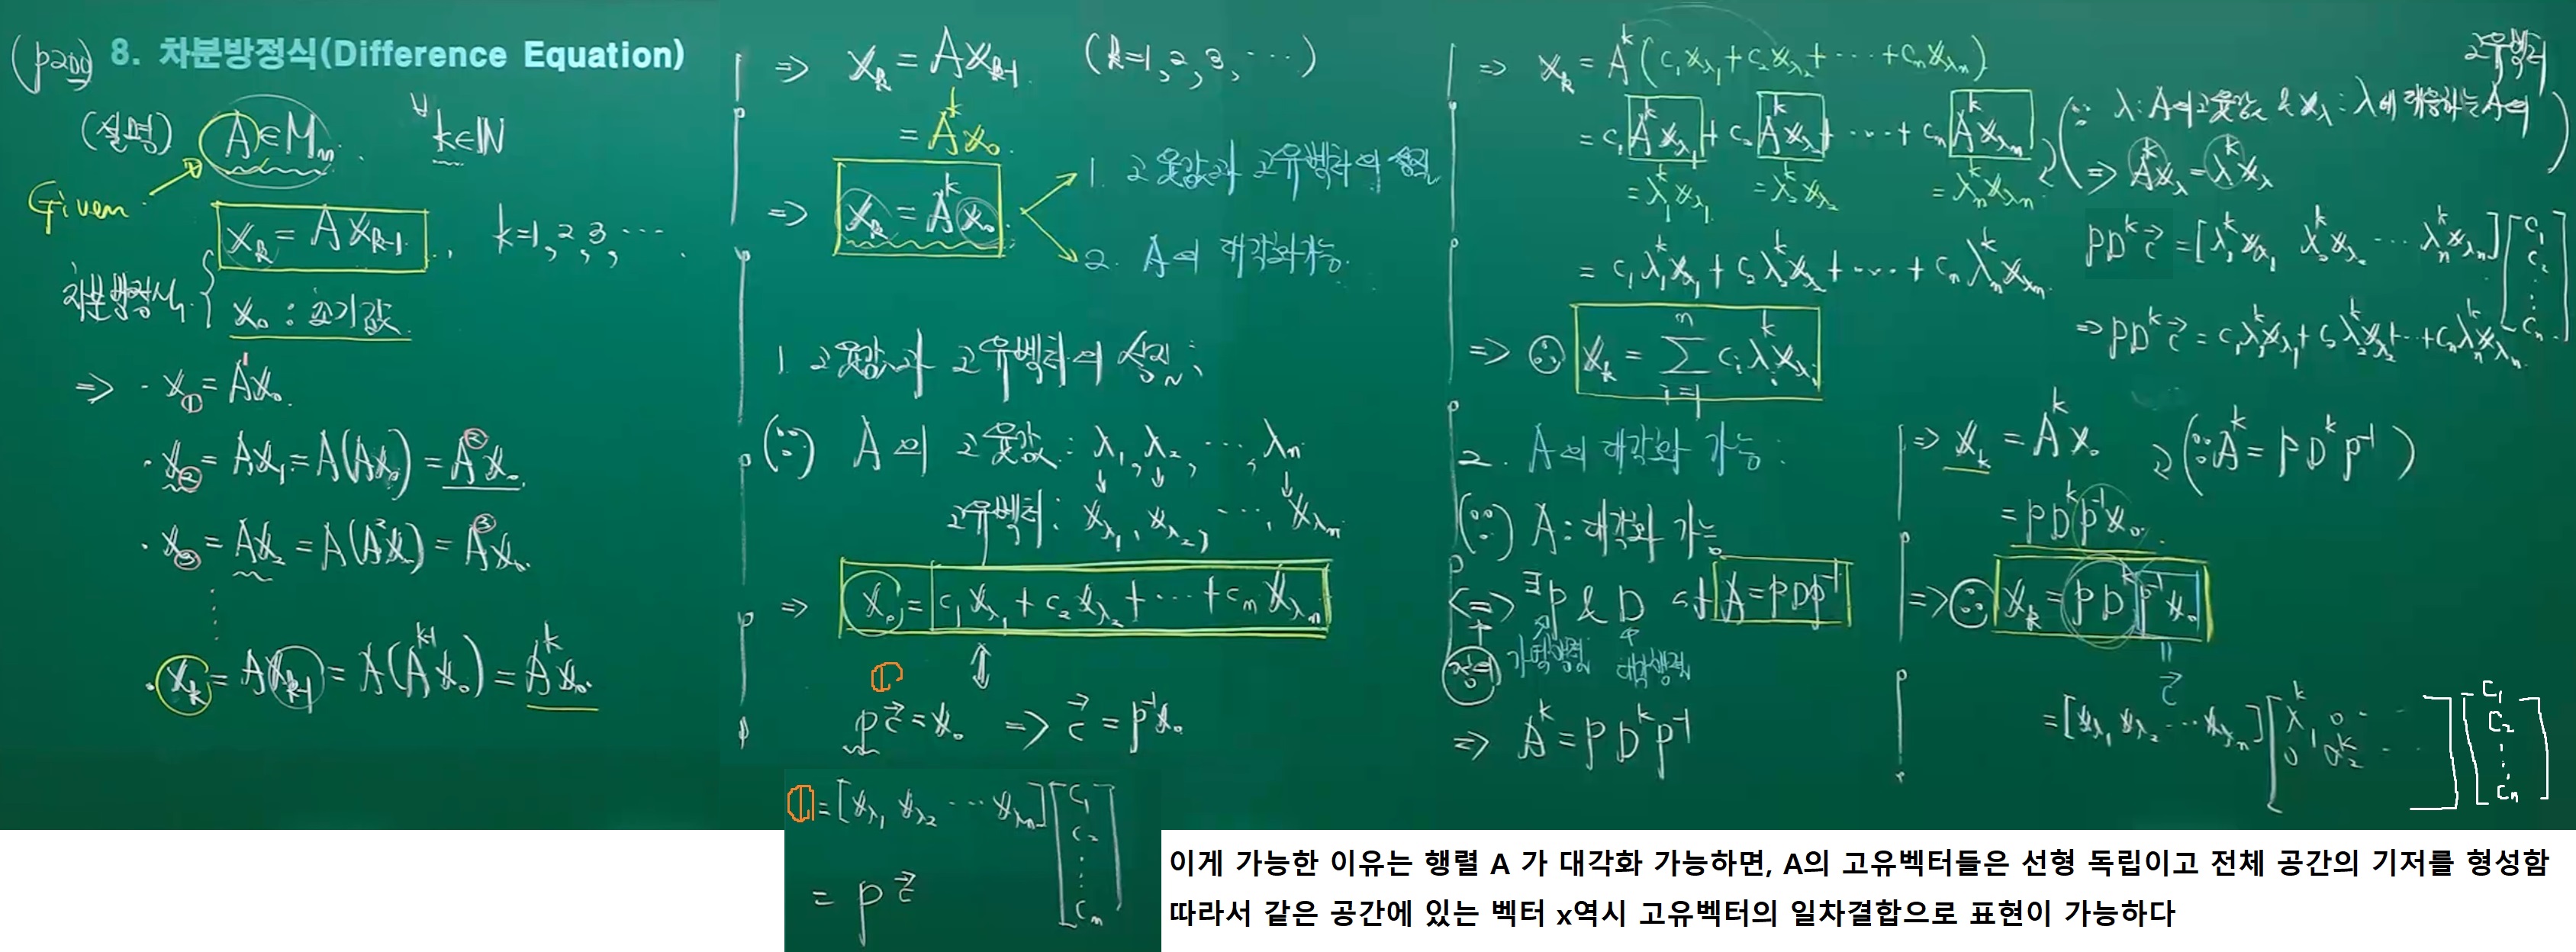 (p200) 8. 차분방정식(Difference Equation)
(설명) A∈Mₙ. ∀k∈ℕ
Given
차분방정식 { x_k = A x_{k-1}, k=1, 2, 3, ⋯
x₀ : 초기값
⇒ · x₁ = A¹x₀.
· x₂ = Ax₁ = A(Ax₀) = A²x₀.
· x₃ = Ax₂ = A(A²x₀) = A³x₀.
⋮
· x_k = Ax_{k-1} = A(A^{k-1}x₀) = A^k x₀.
⇒ x_k = Ax_{k-1} (k=1, 2, 3, ⋯)
= A^k x₀.
⇒ x_k = A^k x₀
1. 고윳값과 고유벡터의 성질
2. A의 대각화가능.
1. 고윳값과 고유벡터의 성질;
(∵) A의 고윳값 : λ₁, λ₂, ⋯, λₙ
↓ ↓ ↓
고유벡터 : x_{λ₁}, x_{λ₂}, ⋯, x_{λₙ}
⇒ x₀ = c₁x_{λ₁} + c₂x_{λ₂} + ⋯ + cₙx_{λₙ}
① ⇕
Pc⃗ = x₀ ⇒ c⃗ = P⁻¹x₀.
① = [x_{λ₁} x_{λ₂} ⋯ x_{λₙ}] [c₁ c₂ ⋮ cₙ]
= Pc⃗
⇒ x_k = A^k(c₁x_{λ₁} + c₂x_{λ₂} + ⋯ + cₙx_{λₙ})
= c₁A^k x_{λ₁} + c₂A^k x_{λ₂} + ⋯ + cₙA^k x_{λₙ}
= λ₁^k x_{λ₁}. = λ₂^k x_{λ₂} = λₙ^k x_{λₙ}
(∵ λ : A의 고윳값 & x_λ : λ에 대응하는 A의 고유벡터
⇒ A^k x_λ = λ^k x_λ)
= c₁λ₁^k x_{λ₁} + c₂λ₂^k x_{λ₂} + ⋯ + cₙλₙ^k x_{λₙ}.
⇒ ∴ x_k = Σ_{i=1}^{n} c_i λ_i^k x_{λ_i}
PD^k c⃗ = [λ₁^k x_{λ₁} λ₂^k x_{λ₂} ⋯ λₙ^k x_{λₙ}] [c₁ c₂ ⋮ cₙ]
⇒ PD^k c⃗ = c₁λ₁^k x_{λ₁} + c₂λ₂^k x_{λ₂} + ⋯ + cₙλₙ^k x_{λₙ}
2. A의 대각화 가능 :
(∵) A : 대각화 가능
⇔ ∃P & D st A = PDP⁻¹
가역행렬 대각행렬
⇒ A^k = PD^kP⁻¹
⇒ x_k = A^k x₀ (∵ A^k = PD^kP⁻¹)
= PD^kP⁻¹x₀.
⇒ ∴ x_k = PD^k P⁻¹x₀
= c⃗
= [x_{λ₁} x_{λ₂} ⋯ x_{λₙ}] [λ₁^k 0 ⋯ 0 λ₂^k ⋯] [c₁ c₂ ⋮ cₙ]
이게 가능한 이유는 행렬 A 가 대각화 가능하면, A의 고유벡터들은 선형 독립이고 전체 공간의 기저를 형성함
따라서 같은 공간에 있는 벡터 x역시 고유벡터의 일차결합으로 표현이 가능하다